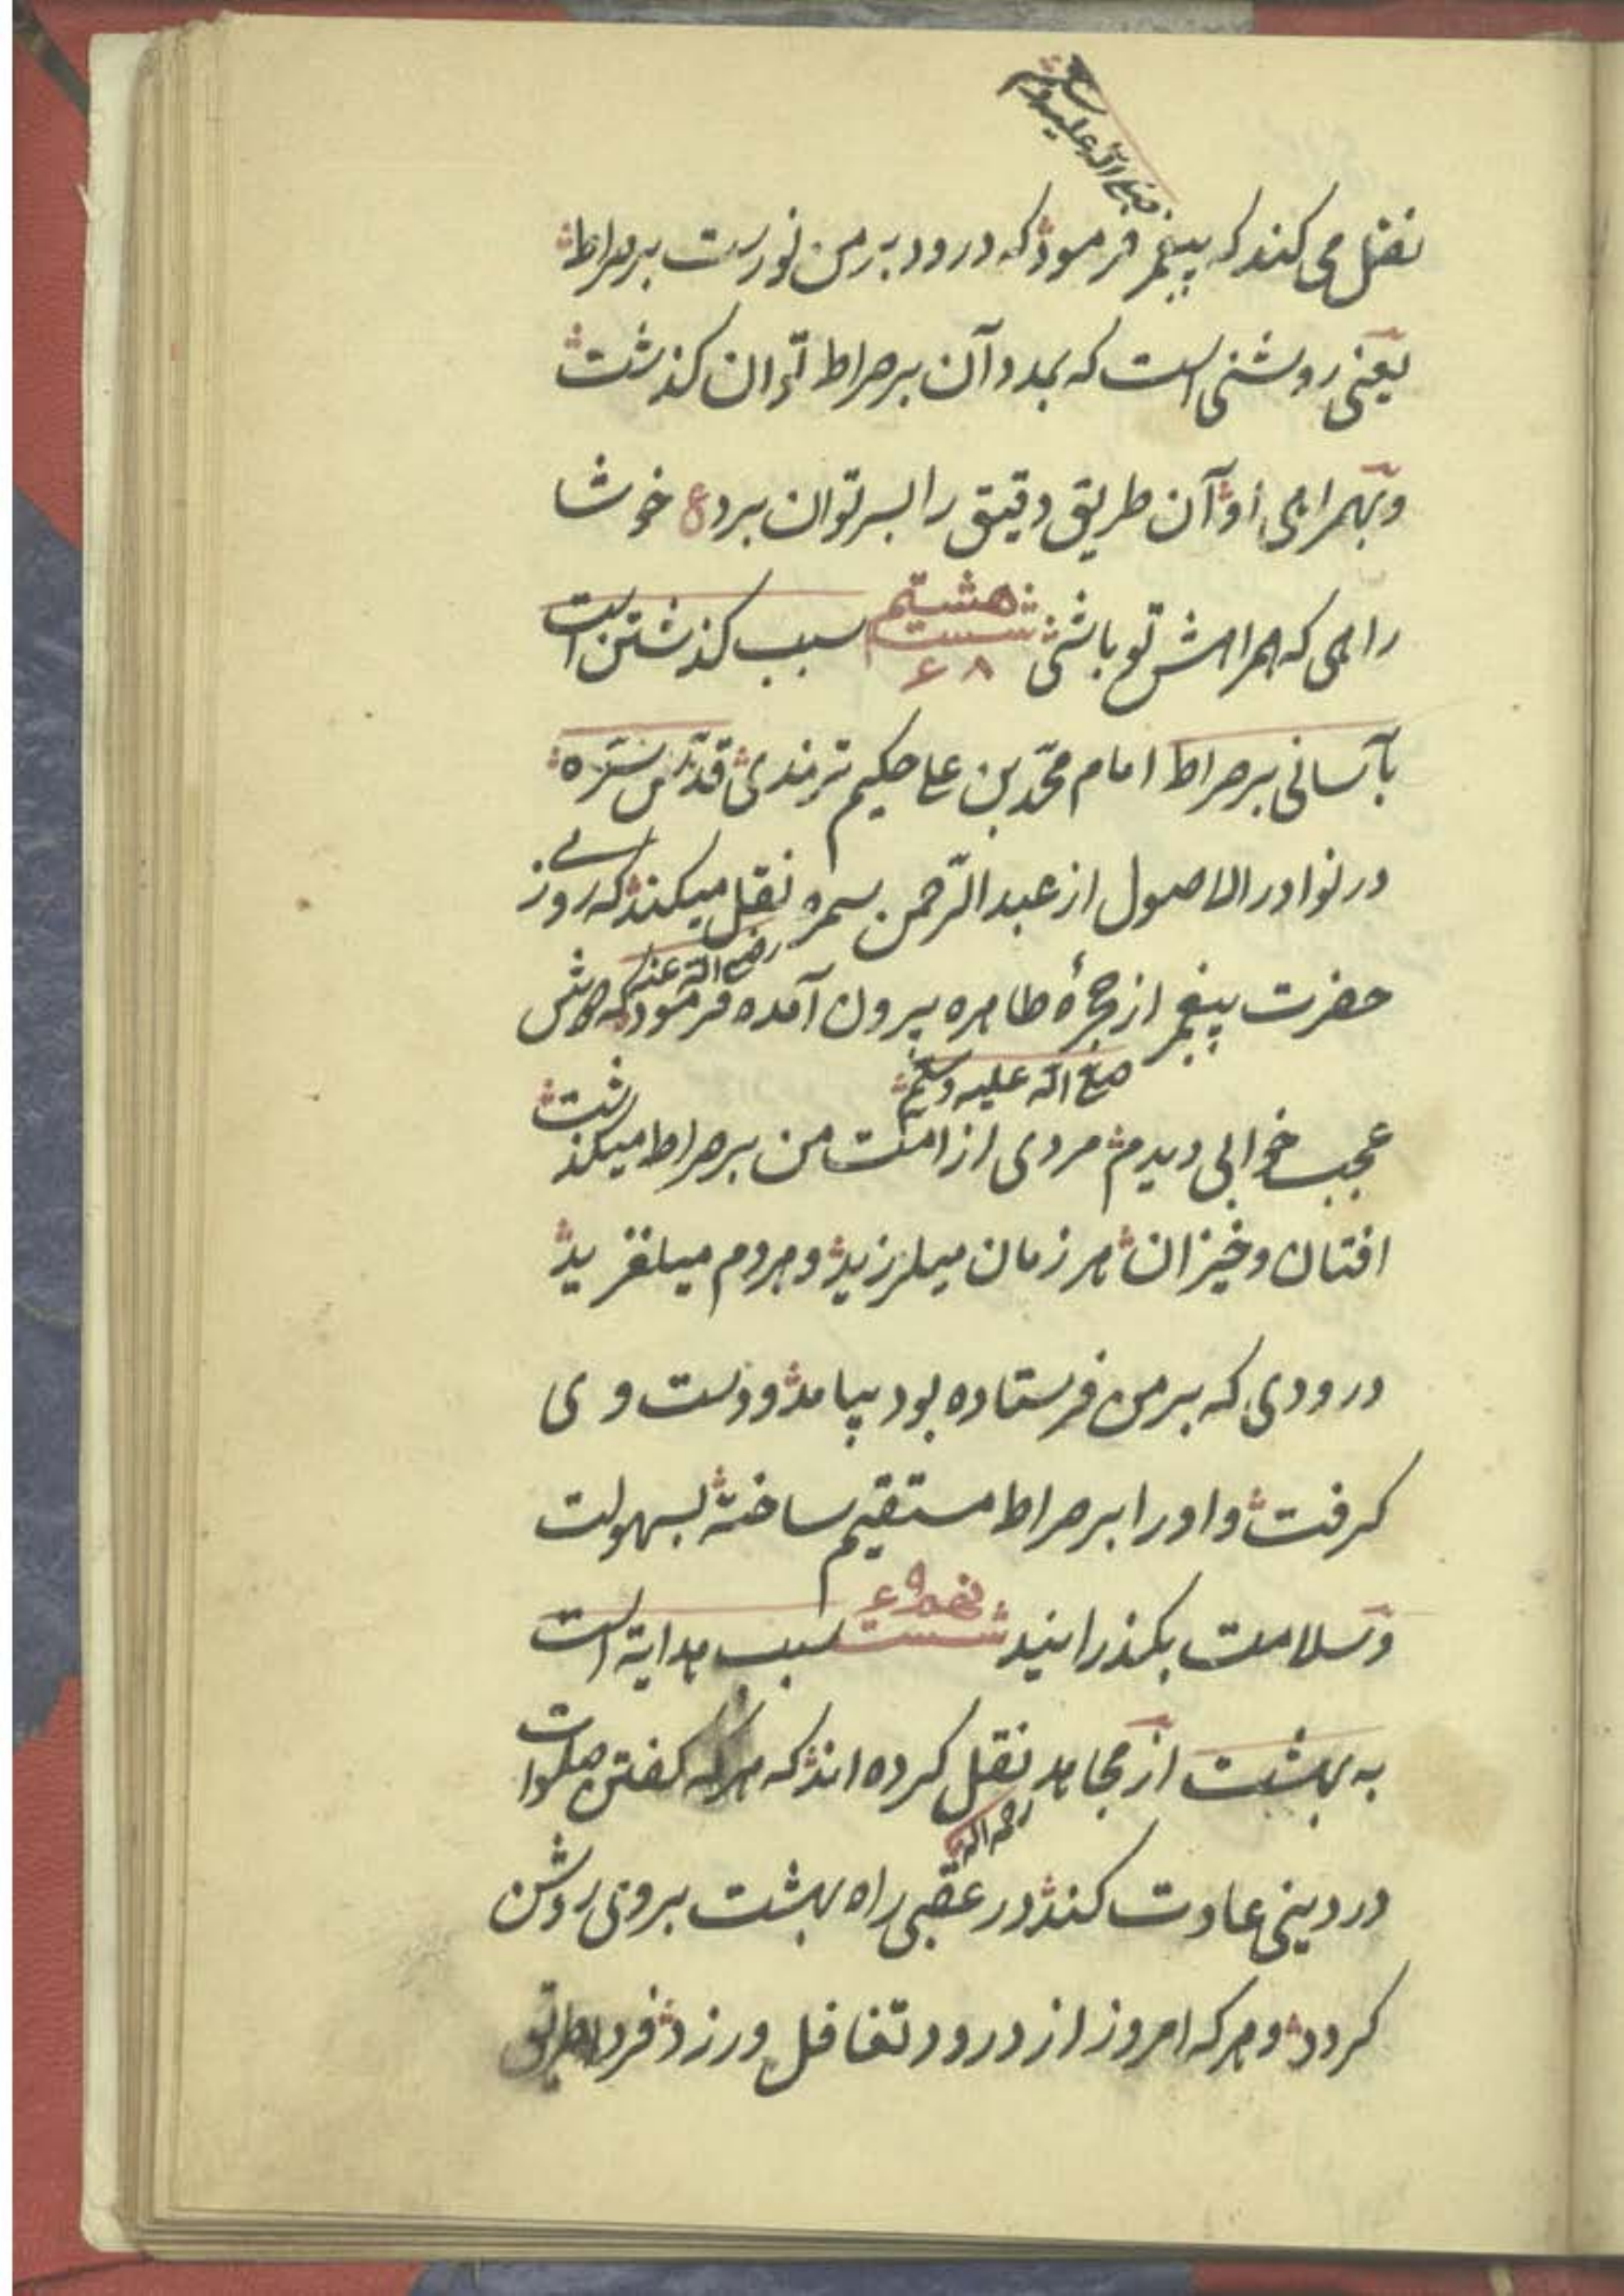 صلی الله علیه وسلم
نقل می کند که پیغمبر فرمود که درود بر من نوریست بر صراط
یعنی روشنی است که بمدد آن بر صراط توان کذشت
و بهمراهی او آن طریق دقیق را بسر توان برد ع خوشا
راهی که همراهش تو باشی شست هشتم ۶۸ سبب کذشتن است
بآسانی بر صراط امام محمّد بن علی حکیم ترمذی قدّس سرّه
در نوادر الاصول از عبد الرّحمن سمره نقل میکند که روزی
رضی الله عنه
حضرت پیغمبر از حجرهٔ طاهره بیرون آمده فرمود که دوش
صلی الله علیه وسلم
عجب خوابی دیدم مردی از امّت من بر صراط میکذشت
افتان و خیزان هر زمان میلرزید و هر دم میلغزید
درودی که بر من فرستاده بود بیامد و دست وی
کرفت و او را بر صراط مستقیم ساخته بسهولت
و سلامت بکذرانید شست نهم ۶۹ سبب هدایة است
به بهشت از مجاهد نقل کرده اند که هر که کفتن صلوات
رحمه الله
در دینی عادت کند در عقبی راه بهشت بر وی روشن
کردد و هر که امروز از درود تغافل ورزد فردا طریق